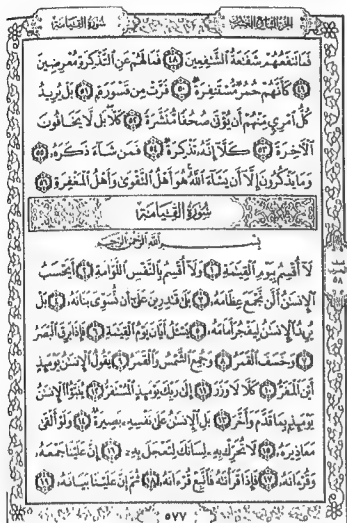 الجزء التاسع والعشرون سورة القيامة
فَمَا تَنفَعُهُمْ شَفَٰعَةُ ٱلشَّٰفِعِينَ ٤٨ فَمَا لَهُمْ عَنِ ٱلتَّذْكِرَةِ مُعْرِضِينَ
٤٩ كَأَنَّهُمْ حُمُرٌ مُّسْتَنفِرَةٌ ٥٠ فَرَّتْ مِن قَسْوَرَةٍ ٥١ بَلْ يُرِيدُ
كُلُّ ٱمْرِئٍ مِّنْهُمْ أَن يُؤْتَىٰ صُحُفًا مُّنَشَّرَةً ٥٢ كَلَّا بَل لَّا يَخَافُونَ
ٱلْءَاخِرَةَ ٥٣ كَلَّآ إِنَّهُۥ تَذْكِرَةٌ ٥٤ فَمَن شَآءَ ذَكَرَهُۥ ٥٥
وَمَا يَذْكُرُونَ إِلَّآ أَن يَشَآءَ ٱللَّهُ هُوَ أَهْلُ ٱلتَّقْوَىٰ وَأَهْلُ ٱلْمَغْفِرَةِ ٥٦
سُورَةُ القِيَامَةِ
بِسْمِ ٱللَّهِ ٱلرَّحْمَٰنِ ٱلرَّحِيمِ
لَآ أُقْسِمُ بِيَوْمِ ٱلْقِيَٰمَةِ ١ وَلَآ أُقْسِمُ بِٱلنَّفْسِ ٱللَّوَّامَةِ ٢ أَيَحْسَبُ
ٱلْإِنسَٰنُ أَلَّن نَّجْمَعَ عِظَامَهُۥ ٣ بَلَىٰ قَٰدِرِينَ عَلَىٰٓ أَن نُّسَوِّىَ بَنَانَهُۥ ٤ بَلْ
يُرِيدُ ٱلْإِنسَٰنُ لِيَفْجُرَ أَمَامَهُۥ ٥ يَسْـَٔلُ أَيَّانَ يَوْمُ ٱلْقِيَٰمَةِ ٦ فَإِذَا بَرِقَ ٱلْبَصَرُ
٧ وَخَسَفَ ٱلْقَمَرُ ٨ وَجُمِعَ ٱلشَّمْسُ وَٱلْقَمَرُ ٩ يَقُولُ ٱلْإِنسَٰنُ يَوْمَئِذٍ
أَيْنَ ٱلْمَفَرُّ ١٠ كَلَّا لَا وَزَرَ ١١ إِلَىٰ رَبِّكَ يَوْمَئِذٍ ٱلْمُسْتَقَرُّ ١٢ يُنَبَّؤُا۟ ٱلْإِنسَٰنُ
يَوْمَئِذٍۭ بِمَا قَدَّمَ وَأَخَّرَ ١٣ بَلِ ٱلْإِنسَٰنُ عَلَىٰ نَفْسِهِۦ بَصِيرَةٌ ١٤ وَلَوْ أَلْقَىٰ
مَعَاذِيرَهُۥ ١٥ لَا تُحَرِّكْ بِهِۦ لِسَانَكَ لِتَعْجَلَ بِهِۦٓ ١٦ إِنَّ عَلَيْنَا جَمْعَهُۥ
وَقُرْءَانَهُۥ ١٧ فَإِذَا قَرَأْنَٰهُ فَٱتَّبِعْ قُرْءَانَهُۥ ١٨ ثُمَّ إِنَّ عَلَيْنَا بَيَانَهُۥ ١٩
الحزب
٥٨
٥٧٧